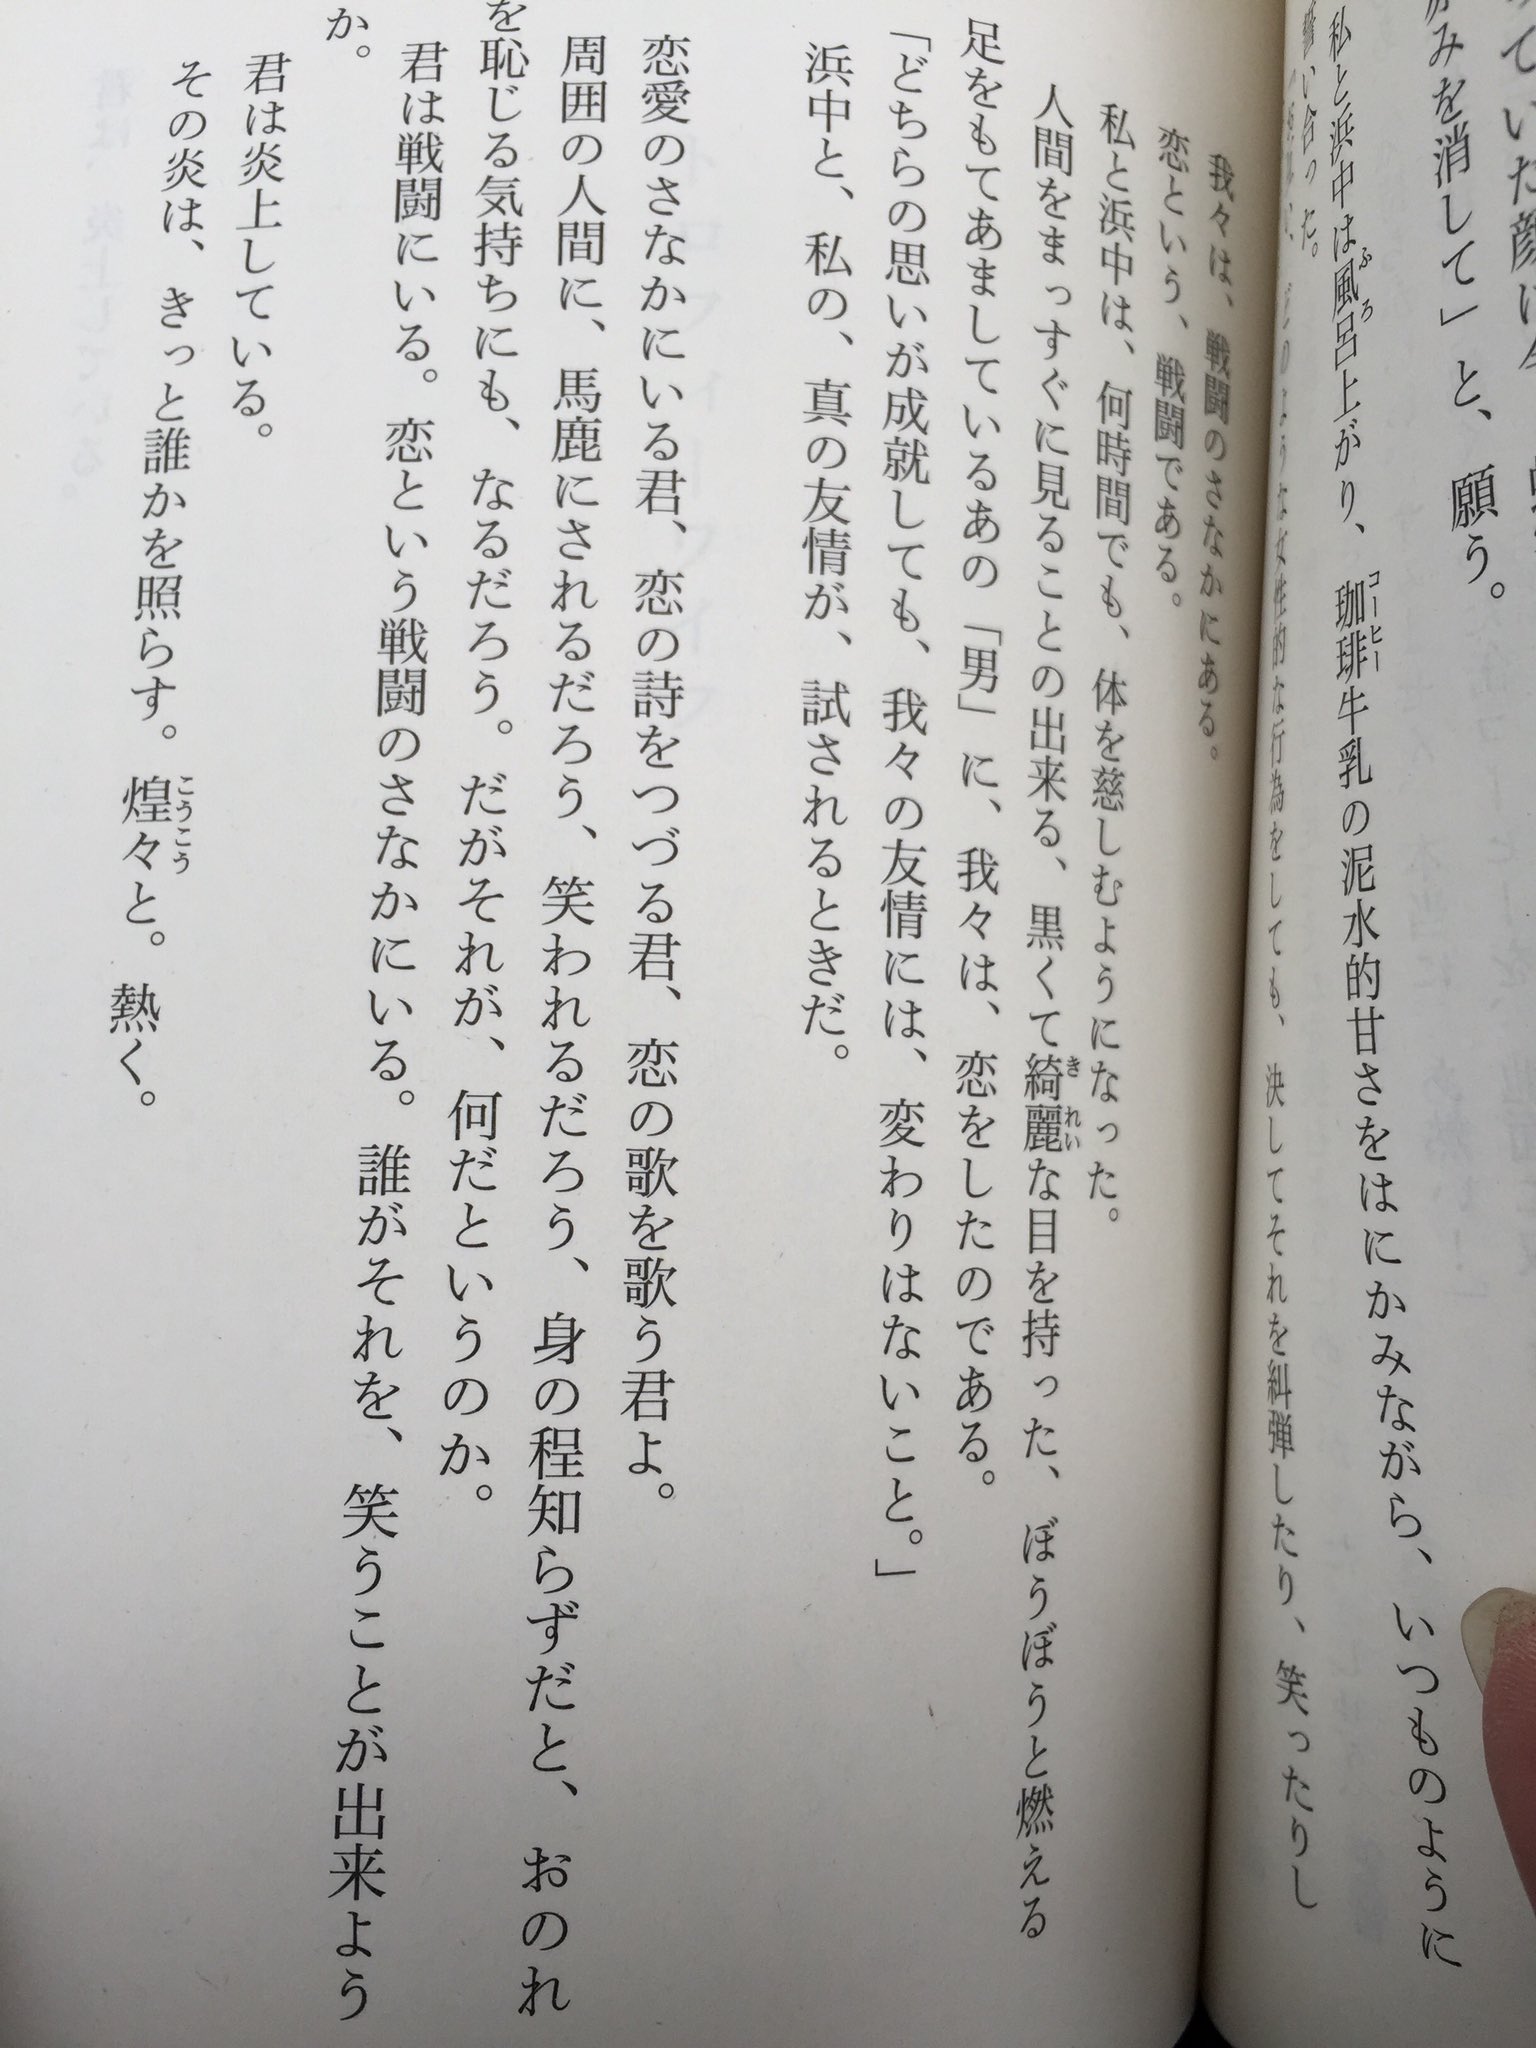 みを消して」と、願う。
私と浜中は風呂上がり、珈琲牛乳の泥水的甘さをはにかみながら、いつものように
い合った。
のような女性的な行為をしても、決してそれを糾弾したり、笑ったりし
我々は、戦闘のさなかにある。
恋という、戦闘である。
私と浜中は、何時間でも、体を慈しむようになった。
人間をまっすぐに見ることの出来る、黒くて綺麗な目を持った、ぼうぼうと燃える
足をもてあましているあの「男」に、我々は、恋をしたのである。
「どちらの思いが成就しても、我々の友情には、変わりはないこと。」
浜中と、私の、真の友情が、試されるときだ。
恋愛のさなかにいる君、恋の詩をつづる君、恋の歌を歌う君よ。
周囲の人間に、馬鹿にされるだろう、笑われるだろう、身の程知らずだと、おのれ
を恥じる気持ちにも、なるだろう。だがそれが、何だというのか。
君は戦闘にいる。恋という戦闘のさなかにいる。誰がそれを、笑うことが出来よう
か。
君は炎上している。
その炎は、きっと誰かを照らす。煌々と。熱く。